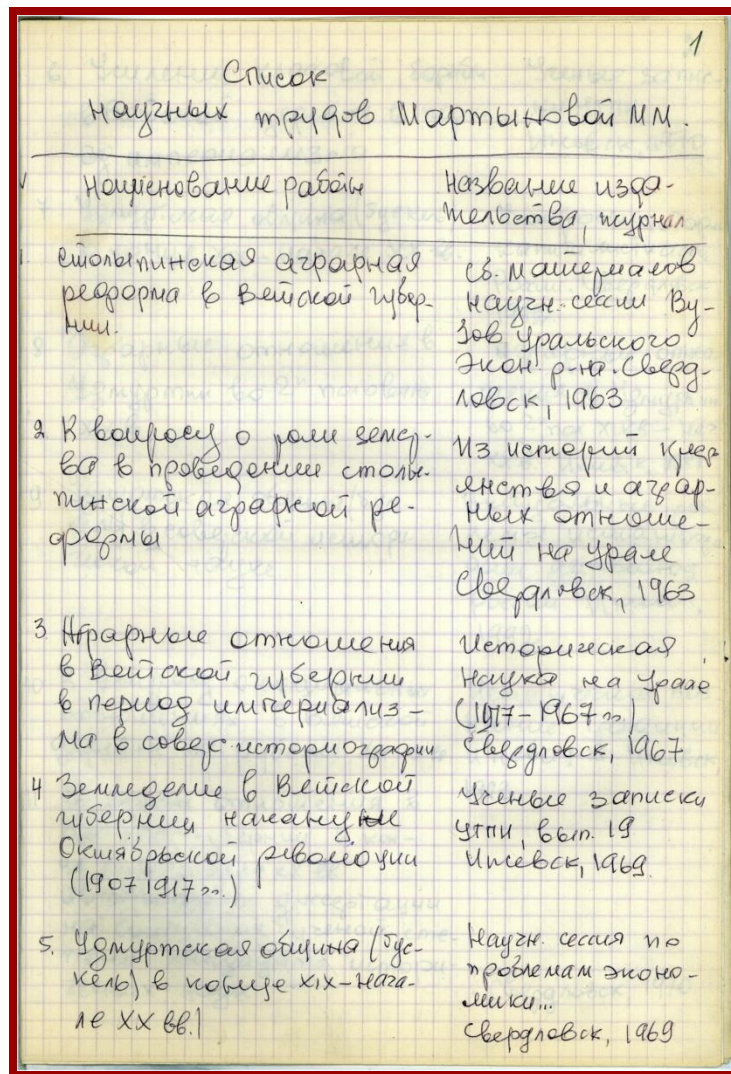 1
Список
научных трудов Мартыновой М.М.
№ Наименование работы
Название изда-
тельства, журнал
1. Столыпинская аграрная
реформа в Вятской губер-
нии.
сб. материалов
научн. сессии Ву-
зов Уральского
Экон. р-на. Сверд-
ловск, 1963
2 К вопросу о роли земс-
ва в проведении столы-
пинской аграрной ре-
формы
Из истории крес
янства и аграр-
ных отноше-
ний на Урале
Свердловск, 1963
3. Аграрные отношения
в Вятской губернии
в период империализ-
ма в совес. историографии
Историческая
наука на Урале
(1917-1967 гг.)
Свердловск, 1967
4 Земледелие в Вятской
губернии накануне
Октябрьской революции
(1907 1917 гг.)
Ученые записки
УГПИ, вып. 19
Ижевск, 1969.
5. Удмуртская община (бус-
кель) в конце XIX-нача-
ле XX вв.
Научн. сессия по
проблемам эконо-
мики...
Свердловск, 1969